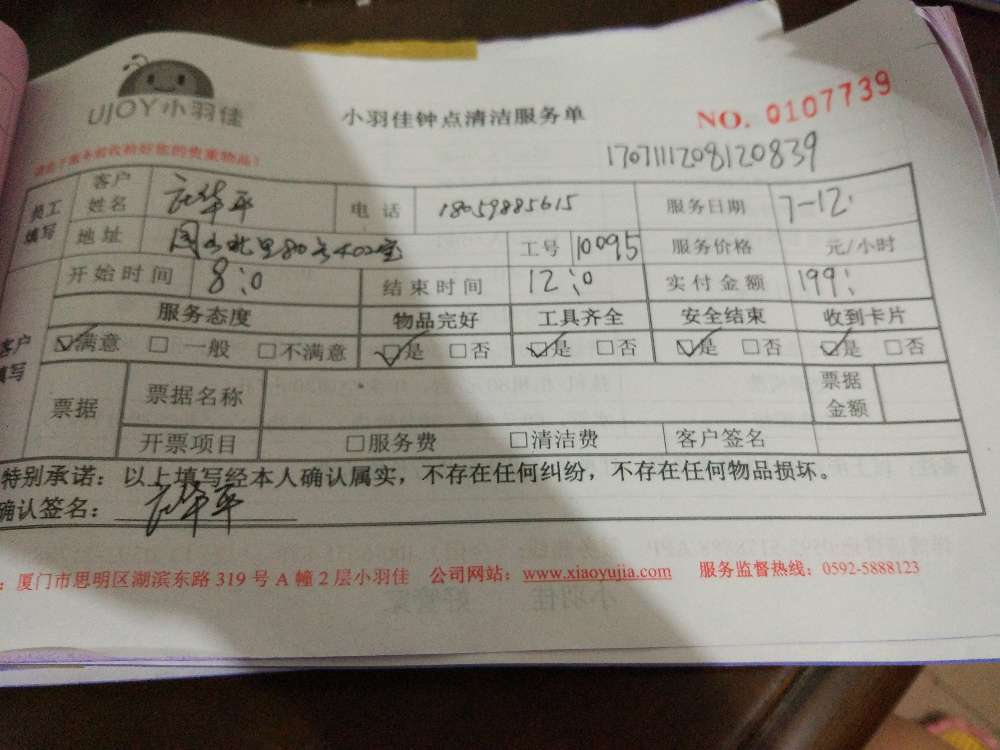 UJOY小羽佳
小羽佳钟点清洁服务单
NO. 0107739
1707111208120839
员工填写
客户姓名 华平 电话 18059885615 服务日期 7-12
地址 北里80号402室 工号 10095 服务价格 元/小时
开始时间 8:0 结束时间 12:0 实付金额 199
客户填写
服务态度 物品完好 工具齐全 安全结束 收到卡片
☑满意 □一般 □不满意 ☑是 □否 ☑是 □否 ☑是 □否 ☑是 □否
票据 票据名称 票据金额
开票项目 □服务费 □清洁费 客户签名
特别承诺：以上填写经本人确认属实，不存在任何纠纷，不存在任何物品损坏。
确认签名： 华平
：厦门市思明区湖滨东路 319 号 A 幢 2 层小羽佳 公司网站：www.xiaoyujia.com 服务监督热线：0592-5888123